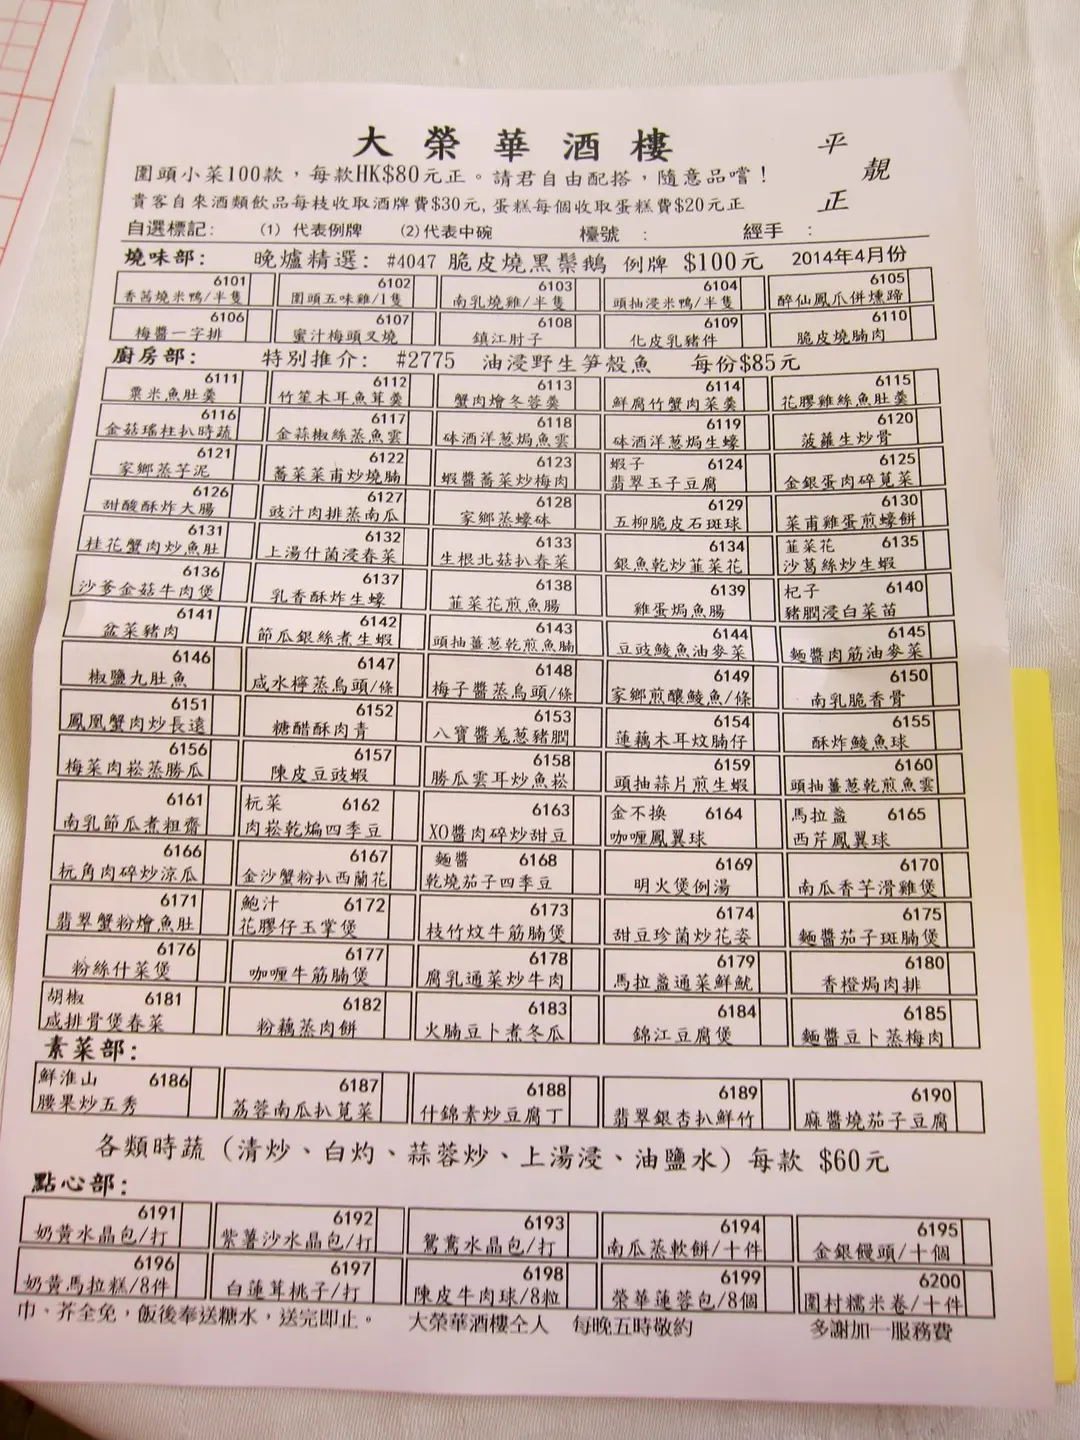 大榮華酒樓
平
靚
正
圍頭小菜100款，每款HK$80元正。請君自由配搭，隨意品嚐！
貴客自來酒類飲品每枝收取酒牌費$30元,蛋糕每個收取蛋糕費$20元正
自選標記: (1) 代表例牌 (2)代表中碗 檯號 : 經手 :
燒味部: 晚爐精選: #4047 脆皮燒黑鬃鵝 例牌 $100元 2014年4月份
6101 6102 6103 6104 6105
香茜燒米鴨/半隻 圍頭五味雞/1隻 南乳燒雞/半隻 頭抽浸米鴨/半隻 醉仙鳳爪併燻蹄
6106 6107 6108 6109 6110
梅醬一字排 蜜汁梅頭叉燒 鎮江肘子 化皮乳豬件 脆皮燒腩肉
廚房部: 特別推介: #2775 油浸野生笋殼魚 每份$85元
6111 6112 6113 6114 6115
粟米魚肚羹 竹笙木耳魚茸羹 蟹肉燴冬蓉羹 鮮腐竹蟹肉菜羹 花膠雞絲魚肚羹
6116 6117 6118 6119 6120
金菇瑤柱扒時蔬 金蒜椒絲蒸魚雲 砵酒洋蔥焗魚雲 砵酒洋蔥焗生蠔 菠蘿生炒骨
6121 6122 6123 蝦子 6124 6125
家鄉蒸芋泥 蕎菜菜甫炒燒腩 蝦醬蕎菜炒梅肉 翡翠玉子豆腐 金銀蛋肉碎莧菜
6126 6127 6128 6129 6130
甜酸酥炸大腸 豉汁肉排蒸南瓜 家鄉蒸蠔砵 五柳脆皮石斑球 菜甫雞蛋煎蠔餅
6131 6132 6133 6134 韮菜花 6135
桂花蟹肉炒魚肚 上湯什菌浸春菜 生根北菇扒春菜 銀魚乾炒韮菜花 沙葛絲炒生蝦
6136 6137 6138 6139 杞子 6140
沙爹金菇牛肉煲 乳香酥炸生蠔 韮菜花煎魚腸 雞蛋焗魚腸 豬膶浸白菜苗
6141 6142 6143 6144 6145
盆菜豬肉 節瓜銀絲煮生蝦 頭抽薑蔥乾煎魚腩 豆豉鯪魚油麥菜 麵醬肉筋油麥菜
6146 6147 6148 6149 6150
椒鹽九肚魚 咸水檸蒸烏頭/條 梅子醬蒸烏頭/條 家鄉煎釀鯪魚/條 南乳脆香骨
6151 6152 6153 6154 6155
鳳凰蟹肉炒長遠 糖醋酥肉青 八寶醬羗蔥豬膶 蓮藕木耳炆腩仔 酥炸鯪魚球
6156 6157 6158 6159 6160
梅菜肉崧蒸勝瓜 陳皮豆豉蝦 勝瓜雲耳炒魚崧 頭抽蒜片煎生蝦 頭抽薑蔥乾煎魚雲
6161 杬菜 6162 6163 金不換 6164 馬拉盞 6165
南乳節瓜煮粗齋 肉崧乾煸四季豆 XO醬肉碎炒甜豆 咖喱鳳翼球 西芹鳳翼球
6166 6167 麵醬 6168 6169 6170
杬角肉碎炒涼瓜 金沙蟹粉扒西蘭花 乾燒茄子四季豆 明火煲例湯 南瓜香芋滑雞煲
6171 鮑汁 6172 6173 6174 6175
翡翠蟹粉燴魚肚 花膠仔玉掌煲 枝竹炆牛筋腩煲 甜豆珍菌炒花姿 麵醬茄子斑腩煲
6176 6177 6178 6179 6180
粉絲什菜煲 咖喱牛筋腩煲 腐乳通菜炒牛肉 馬拉盞通菜鮮魷 香橙焗肉排
胡椒 6181 6182 6183 6184 6185
咸排骨煲春菜 粉藕蒸肉餅 火腩豆卜煮冬瓜 錦江豆腐煲 麵醬豆卜蒸梅肉
素菜部:
鮮淮山 6186 6187 6188 6189 6190
腰果炒五秀 荔蓉南瓜扒莧菜 什錦素炒豆腐丁 翡翠銀杏扒鮮竹 麻醬燒茄子豆腐
各類時蔬（清炒、白灼、蒜蓉炒、上湯浸、油鹽水）每款 $60元
點心部:
6191 6192 6193 6194 6195
奶黃水晶包/打 紫薯沙水晶包/打 鴛鴦水晶包/打 南瓜蒸軟餅/十件 金銀饅頭/十個
6196 6197 6198 6199 6200
奶黃馬拉糕/8件 白蓮茸桃子/打 陳皮牛肉球/8粒 榮華蓮蓉包/8個 圍村糯米卷/十件
巾、芥全免，飯後奉送糖水，送完即止。 大榮華酒樓仝人 每晚五時敬約 多謝加一服務費